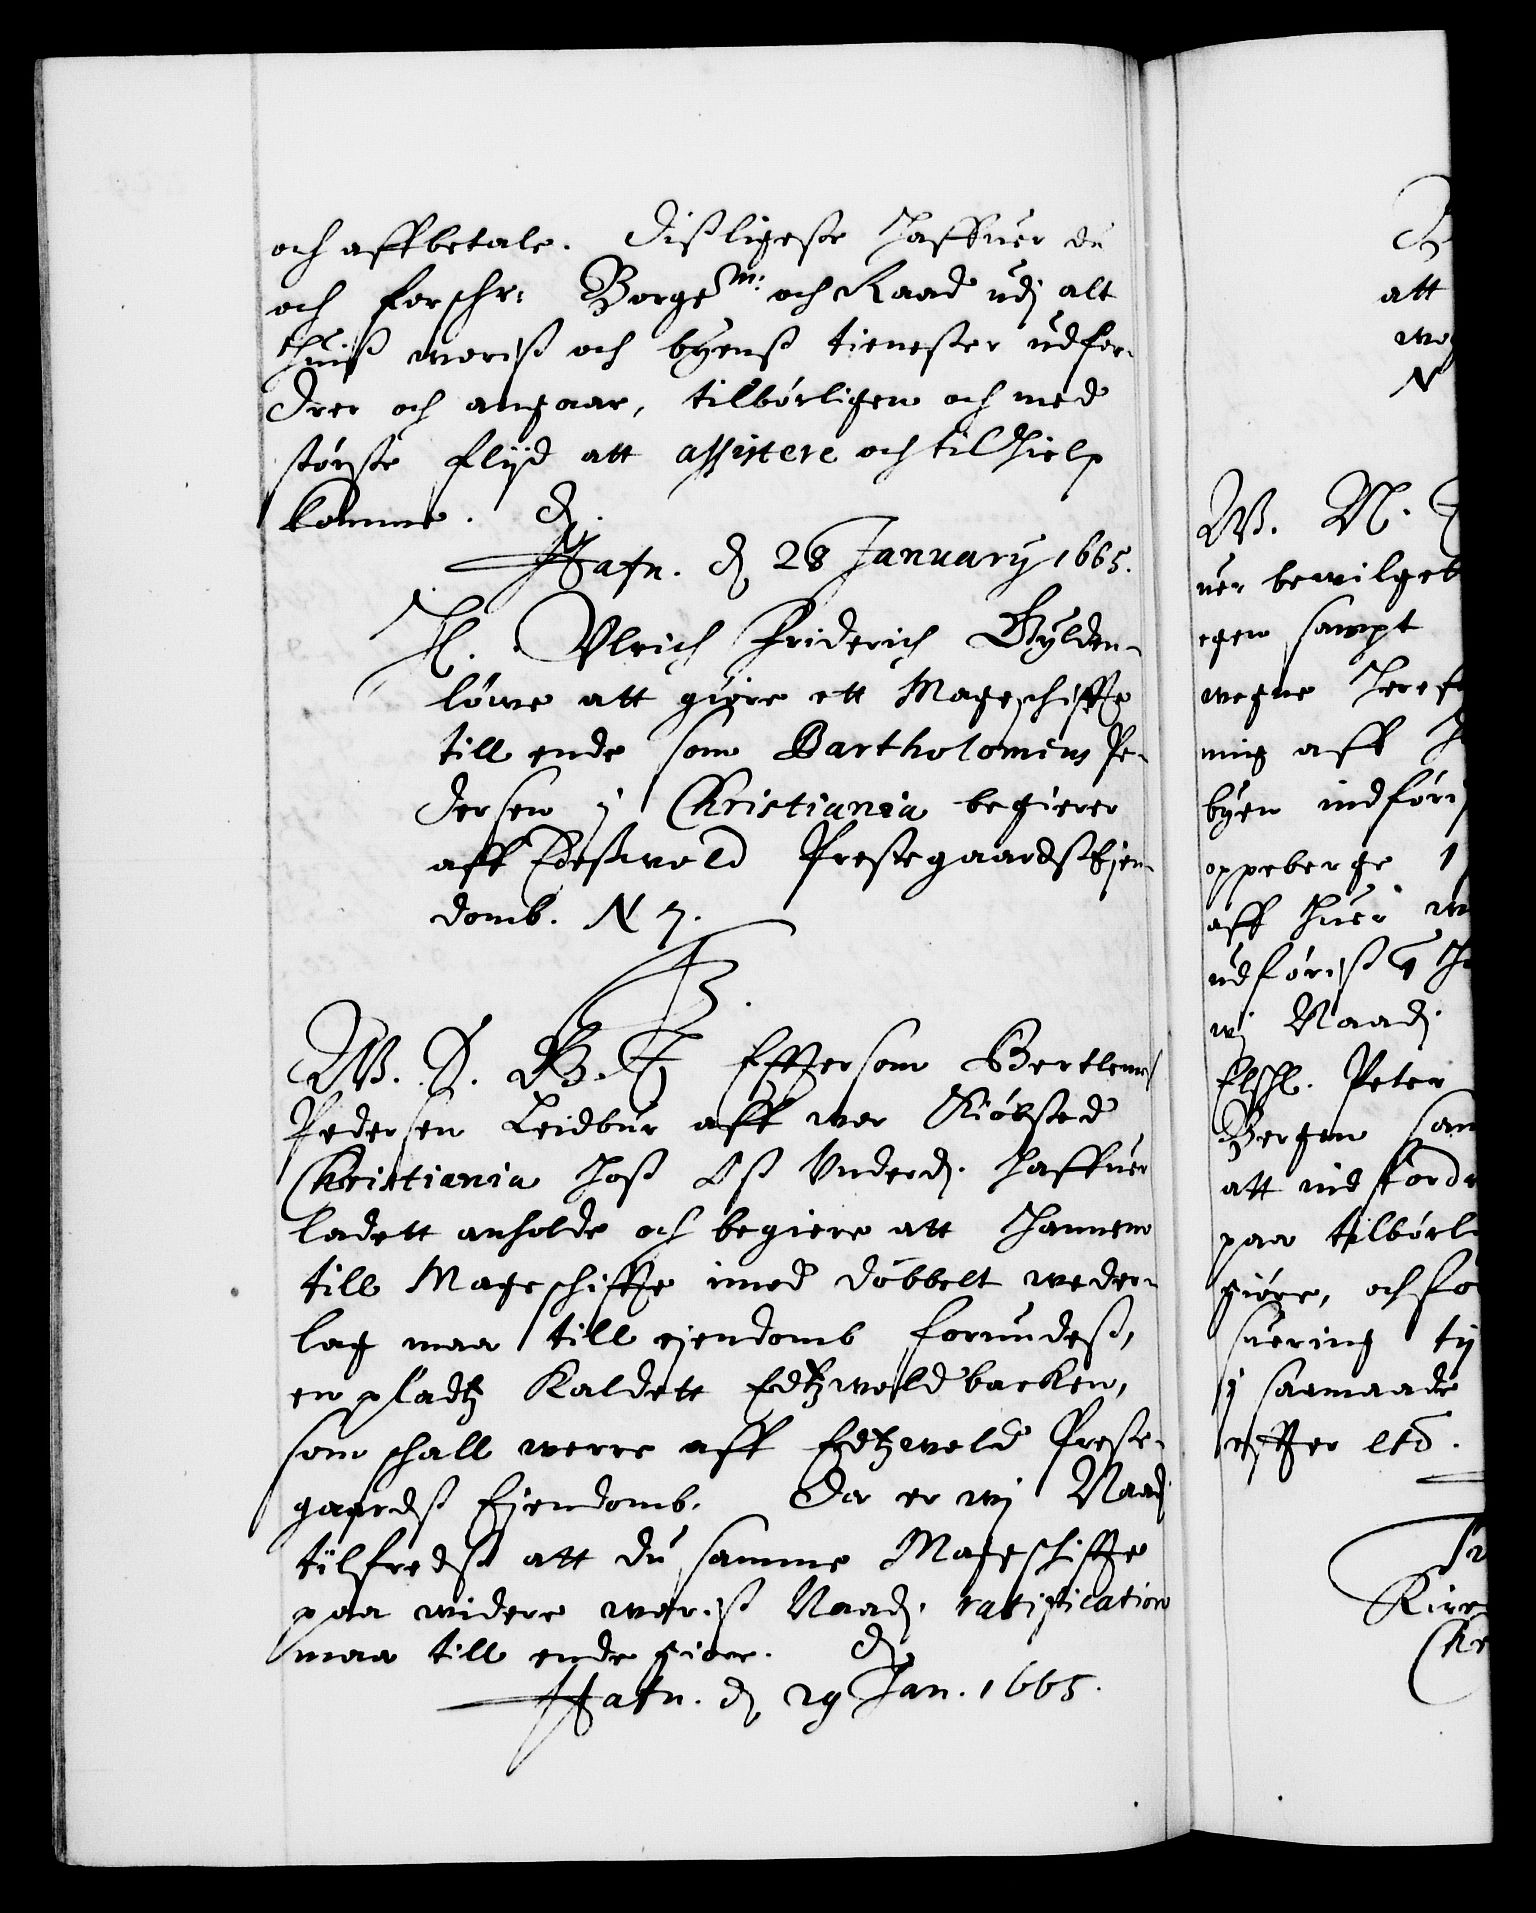 och affbetale. Dißligeste haffuer du
och forschr: Borgem: och Raad udj alt
huiß woriß och byenß tienester udfor-
drer och angaar, tilbørligen och med
største flijd att assistere och til hielp
komme. D.
Hafn. d 28 January 1665.
H. Vlrich Friderich Gylden-
løwe att giøre ett Mageschiffte
till ende som Bartholomeus Pe-
dersen j Christiania begierer
aff Edeßwold Prestegaardß Ejen-
domb. N 7.
F3.
W. S. G. T. Efftersom Bertlemeß
Pedersen Leidbur aff wor Kiøbsted
Christiania hoß Oß Underd. haffuer
ladett anholde och begiere att hannem
till Mageschiffte imod døbbelt weder-
lag maa till ejendomb forundeß,
en pladtz Kaldett Edtzwoldbacken,
som schall werre aff Edtzwold Preste-
gaardß Ejendomb. Da er wj Naad
tilfredß att du samme Mageschiffte
paa widere woriß Naad. ratification
maa till ende giøre. D.
Hafn. d 29 Jan. 1665.
att
N
W. M.
uer bewilget
egen sampt
wegne
ming aff
byen indføriß
oppeberge 1
aff huer
udføriß 1
wj Naad.
Elschl. Peter
Bergen
att indfordre
paa tilbørl
giøre, och
suering
j saamaade
effter